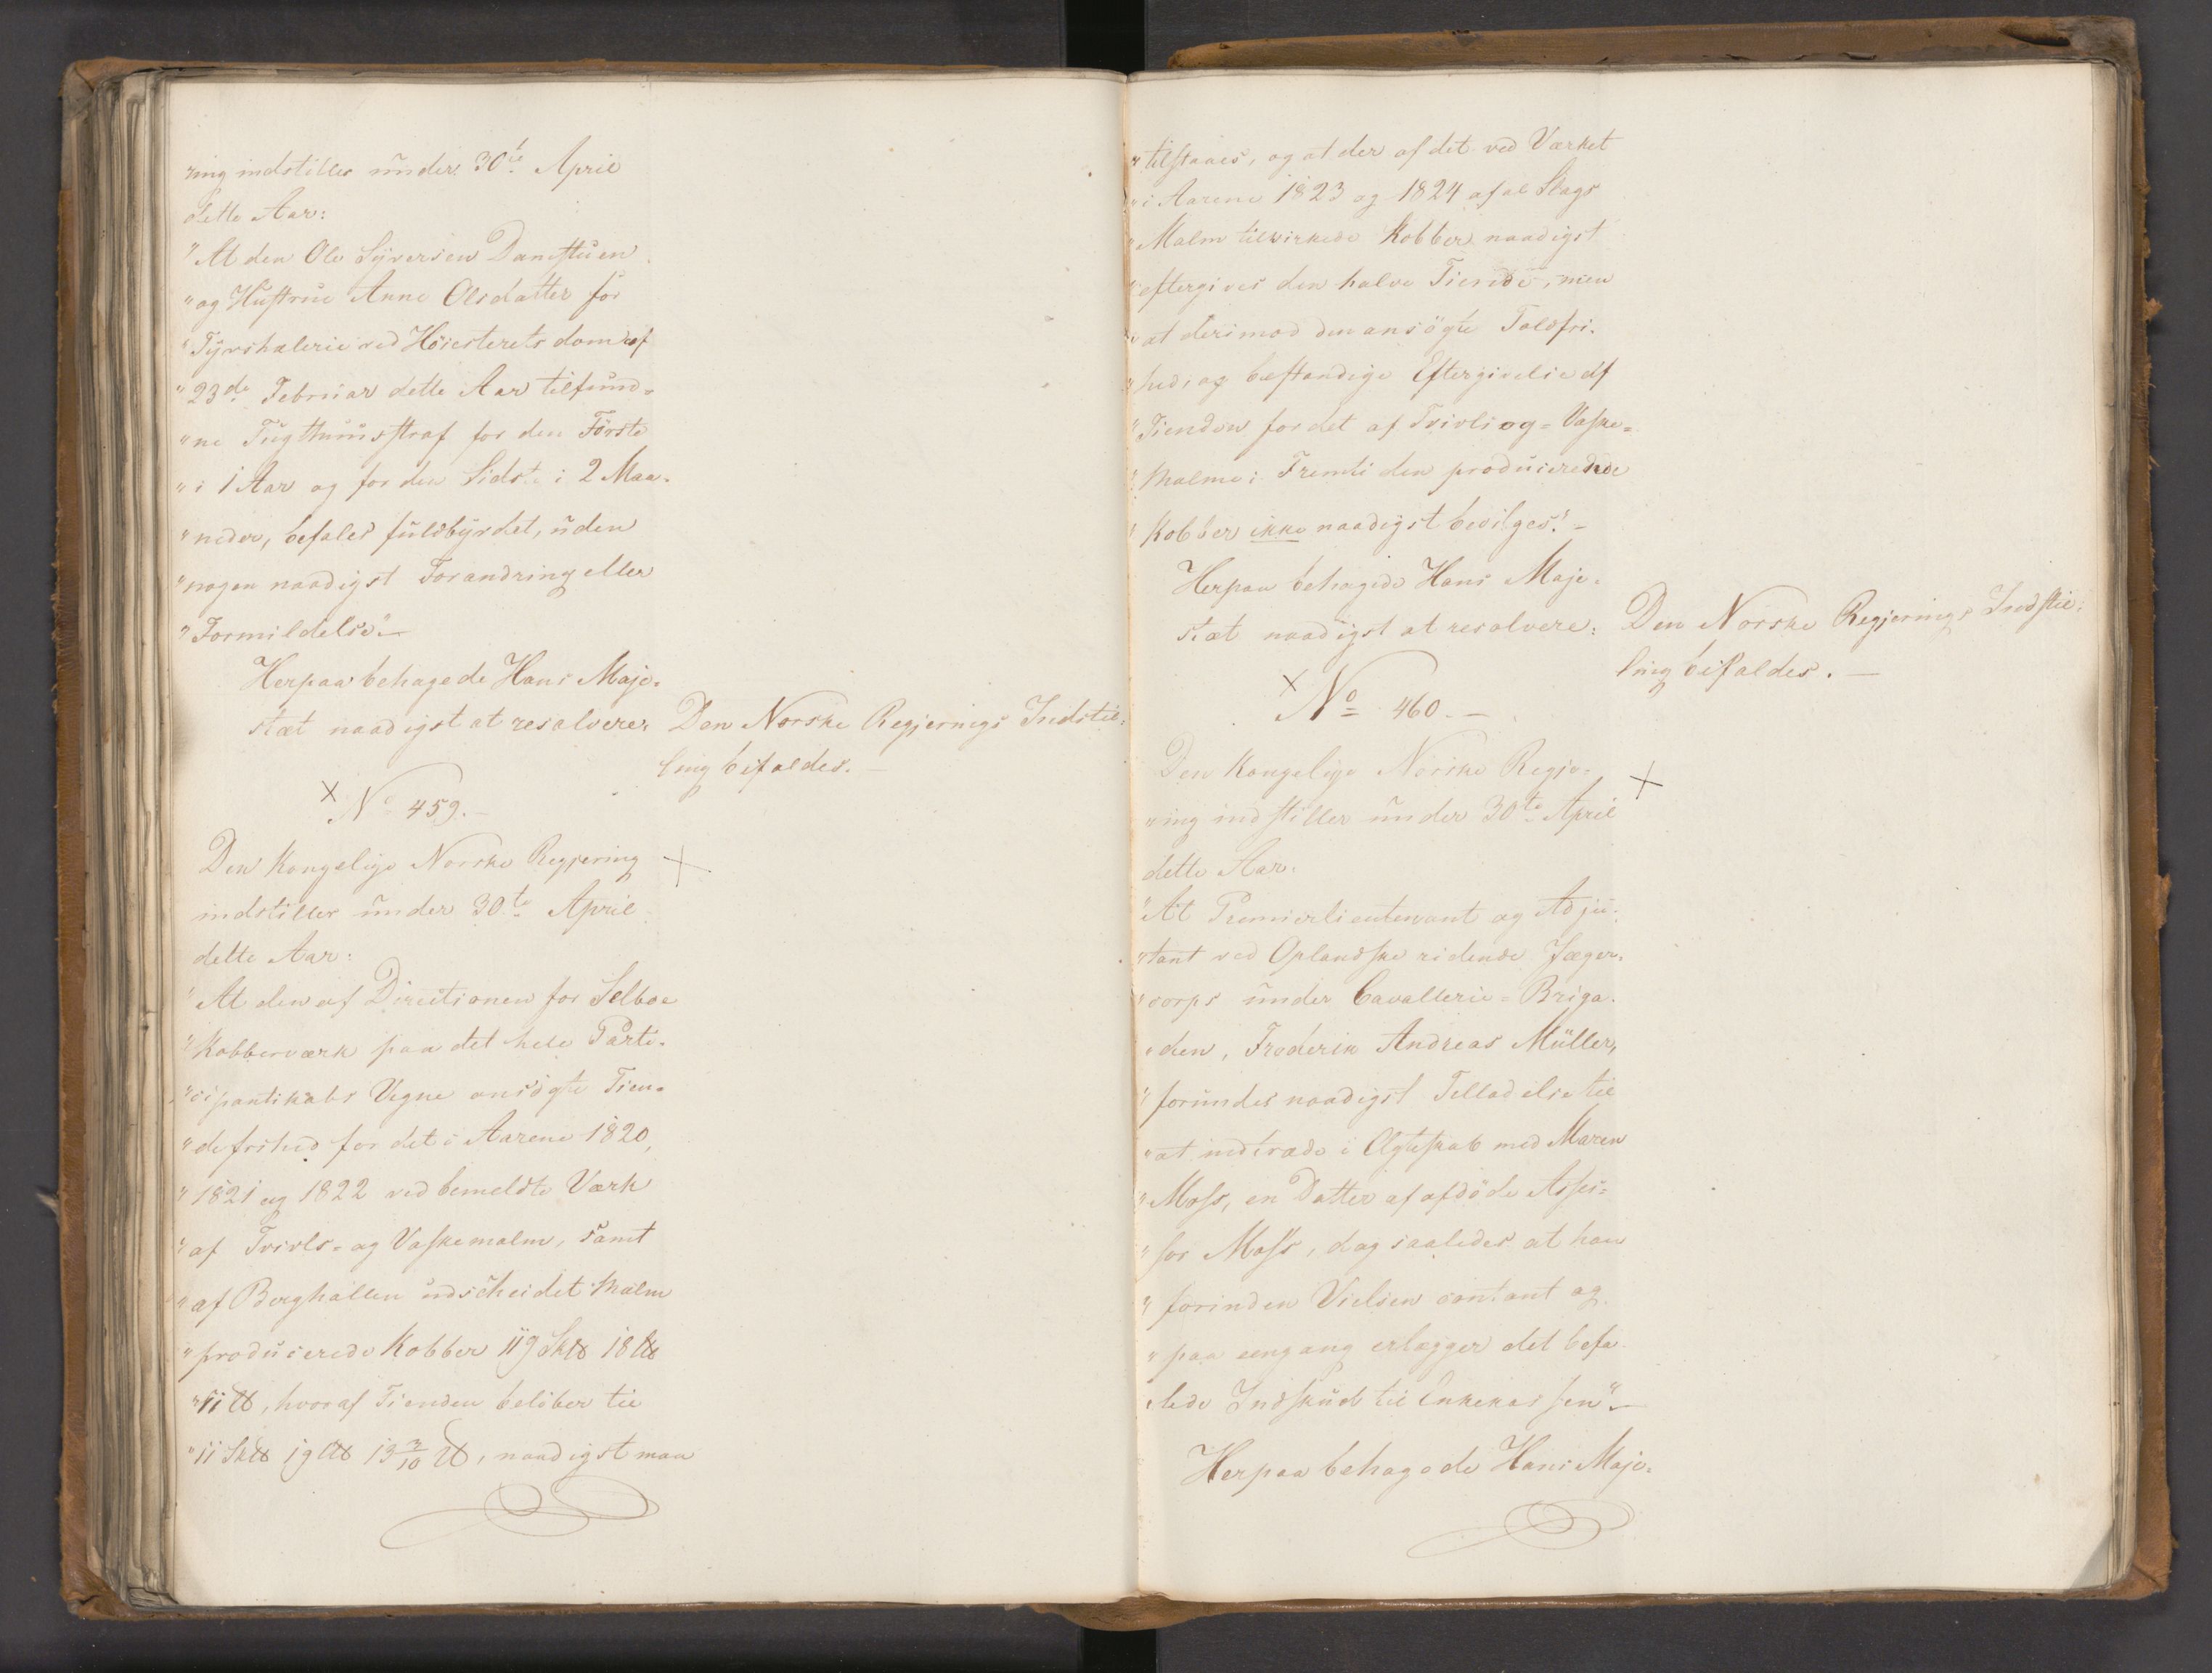 ring indstiller under 30te April
dette Aar:
"At den Ole Syversen Danestuen
"og Hustrue Anne Olsdatter for
"Tyvshælerie ved Höiesterets dom af
"23de Februar dette Aar tilfund-
"ne Tugthuusstraf for den Förste
"i 1 Aar og for den Sidste i 2 Maa-
"neder, befales fuldbyrdet, uden
"nogen naadigst Forandring eller
"Formildelse".-
Herpaa behagede Hans Maje-
stæt naadigst at resolvere:
Den Norske Regjerings Indstil-
ling bifaldes.-
× No 459.-
Den Kongelige Norske Regjering ×
indstiller under 30te April
dette Aar:
"At den af Directionen for Selboe
"Kobberværk paa det hele Parti-
"cipantskabs Vegne ansögte Tien-
"defrihed for det i Aarene 1820,
"1821 og 1822 ved bemeldte Værk
"af Tvivls- og Vaskemalm, samt
"af Berghallen udscheidet Malm
"producerede Kobber 119 Sk℔ 18 L℔
"11 ℔, hvoraf Tienden belöber til
"11 Sk℔ 19 L℔ 13 3/10 ℔, naadigst maa
"tilstaaes, og at der af det ved Værket
"i Aarene 1823 og 1824 af al Slags
"Malm tilvirkede Kobber naadigst
"eftergives den halve Tiende, men
"at derimod den ansögte Toldfri-
"hed, og bestandige Eftergivelse af
"Tienden for det af Tvivls og- Vaske-
"Malme i Fremtiden producerede
"Kobber ikke naadigst bevilges".-
Herpaa behagede Hans Maje-
stæt naadigst at resolvere:
Den Norske Regjerings Indstil-
ling bifaldes.-
× No 460.-
Den Kongelige Norske Regje- ×
ring indstiller under 30te April
dette Aar:
"At Premierlieutenant og Adju-
"tant ved Oplandske ridende Jæger-
"corps under Cavallerie-Briga-
"den, Frederik Andreas Müller,
"forundes naadigst Tilladelse til
"at indtræde i Ægteskab med Maren
"Moss, en Datter af afdöde Asses-
"sor Moss, dog saaledes at han
"forinden Vielsen contant og
"paa eengang erlægger det befa-
lede Indskud til Enkekassen".-
Herpaa behagede Hans Maje-